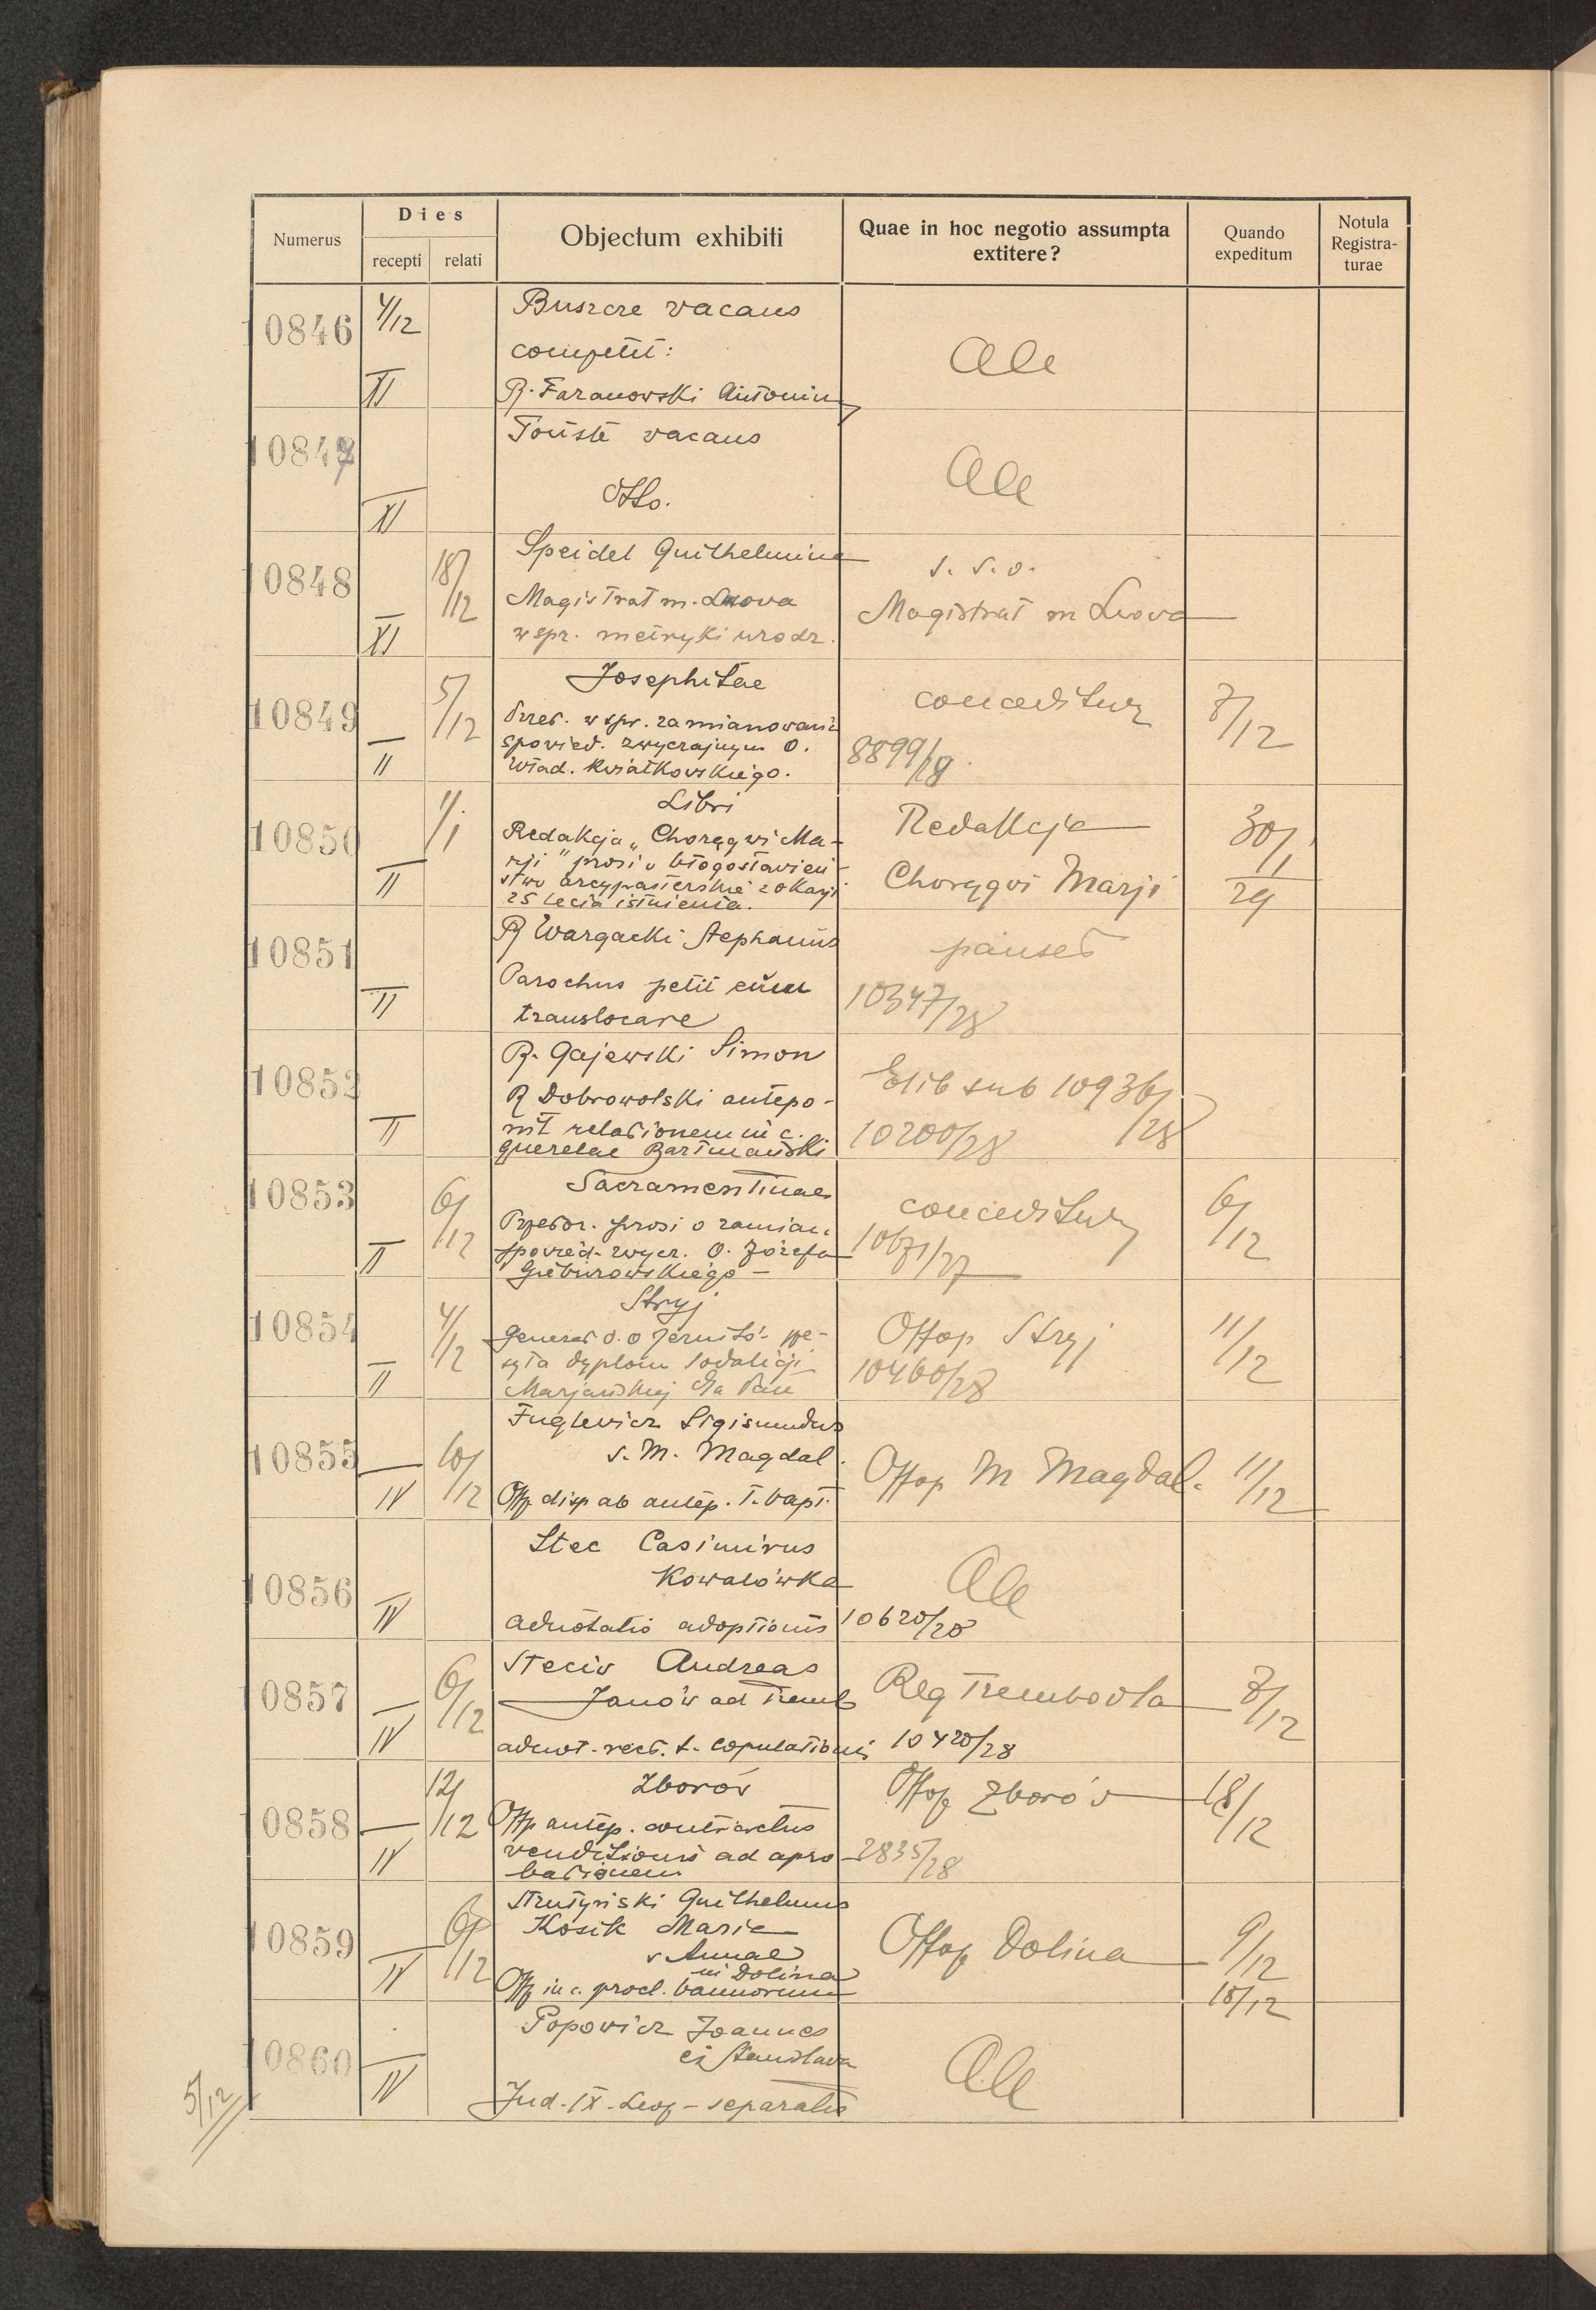 Numerus
Dies
recepti
relati
Objectum exhibiti
Quae in hoc negotio assumpta
extitere?
Quando
expeditum
Notula
Registra-
turae
10846
4/12
XI
Buszcze vacans
competit:
R. Taranowski Antonius
Ale
10847
XI
Touste vacans
dtto.
Ale
10848
XI
18/12
Speidel Guilhelmina
Magistrat m. Lwowa
w spr. metryki urodz.
s. s. o.
Magistrat m Lwowa
10849
II
5/12
Josephitae
Przeł. w spr. zamianowania
spowied. zwyczajnym O.
Wład. Kwiatkowskiego.
conceditur
8899/18
7/12
10850
II
1/1
Libri
Redakcja „Chorągwi Ma-
rji" prosi o błogosławień
stwo arcypasterskie z okazji
25 lecia istnienia.
Redakcja
Chorągwi Marji
30/1
29
10851
II
R Wargacki Stephanus
Parochus petit eum
translocare
10347/28
10852
II
R. Gajewski Simon
R Dobrowolski antepo-
nit relationem in c.
querelae Bartmański
Elib sub 10936/28
10200/28
10853
II
6/12
Sacramentinae
Przełoż. prosi o zamian.
spowied. zwycz. O. Józefa
conceditur
1071/27
6/12
10854
II
4/12
Stryj
Generał O. O Jezuitów
syła dyplom Sodalicji
Marjańskiej dla Pań
Offop Stryj
10460/28
11/12
10855
IV
10/12
Fuglewicz Sigismundus
S. M. Magdal.
Offp disp ab antep. T. bapt.
Offop M Magdal.
11/12
10856
IV
Stec Casimirus
Kowalówka
adnotatio adoptionis
Ale
10620/28
10857
IV
6/12
Steciw Andreas
Janów ad Tremb
adnot. rect. t. copulationis
Reg Trembowla
10420/28
7/12
10858
IV
12/12
Zborów
Offp antep. contractus
venditionis ad apro
bationem
Offop Zborów
2835/28
18/12
10859
IV
6/12
Strutyński Guilhelmus
Kosik Maria
s Annae
in Dolina
Offp in c. procl. bannorum
Offop Dolina
9/12
10860
IV
Popowicz Joannes
et Stanislava
Jud. IX. Leop - separatio
Ale
18/12
5/12